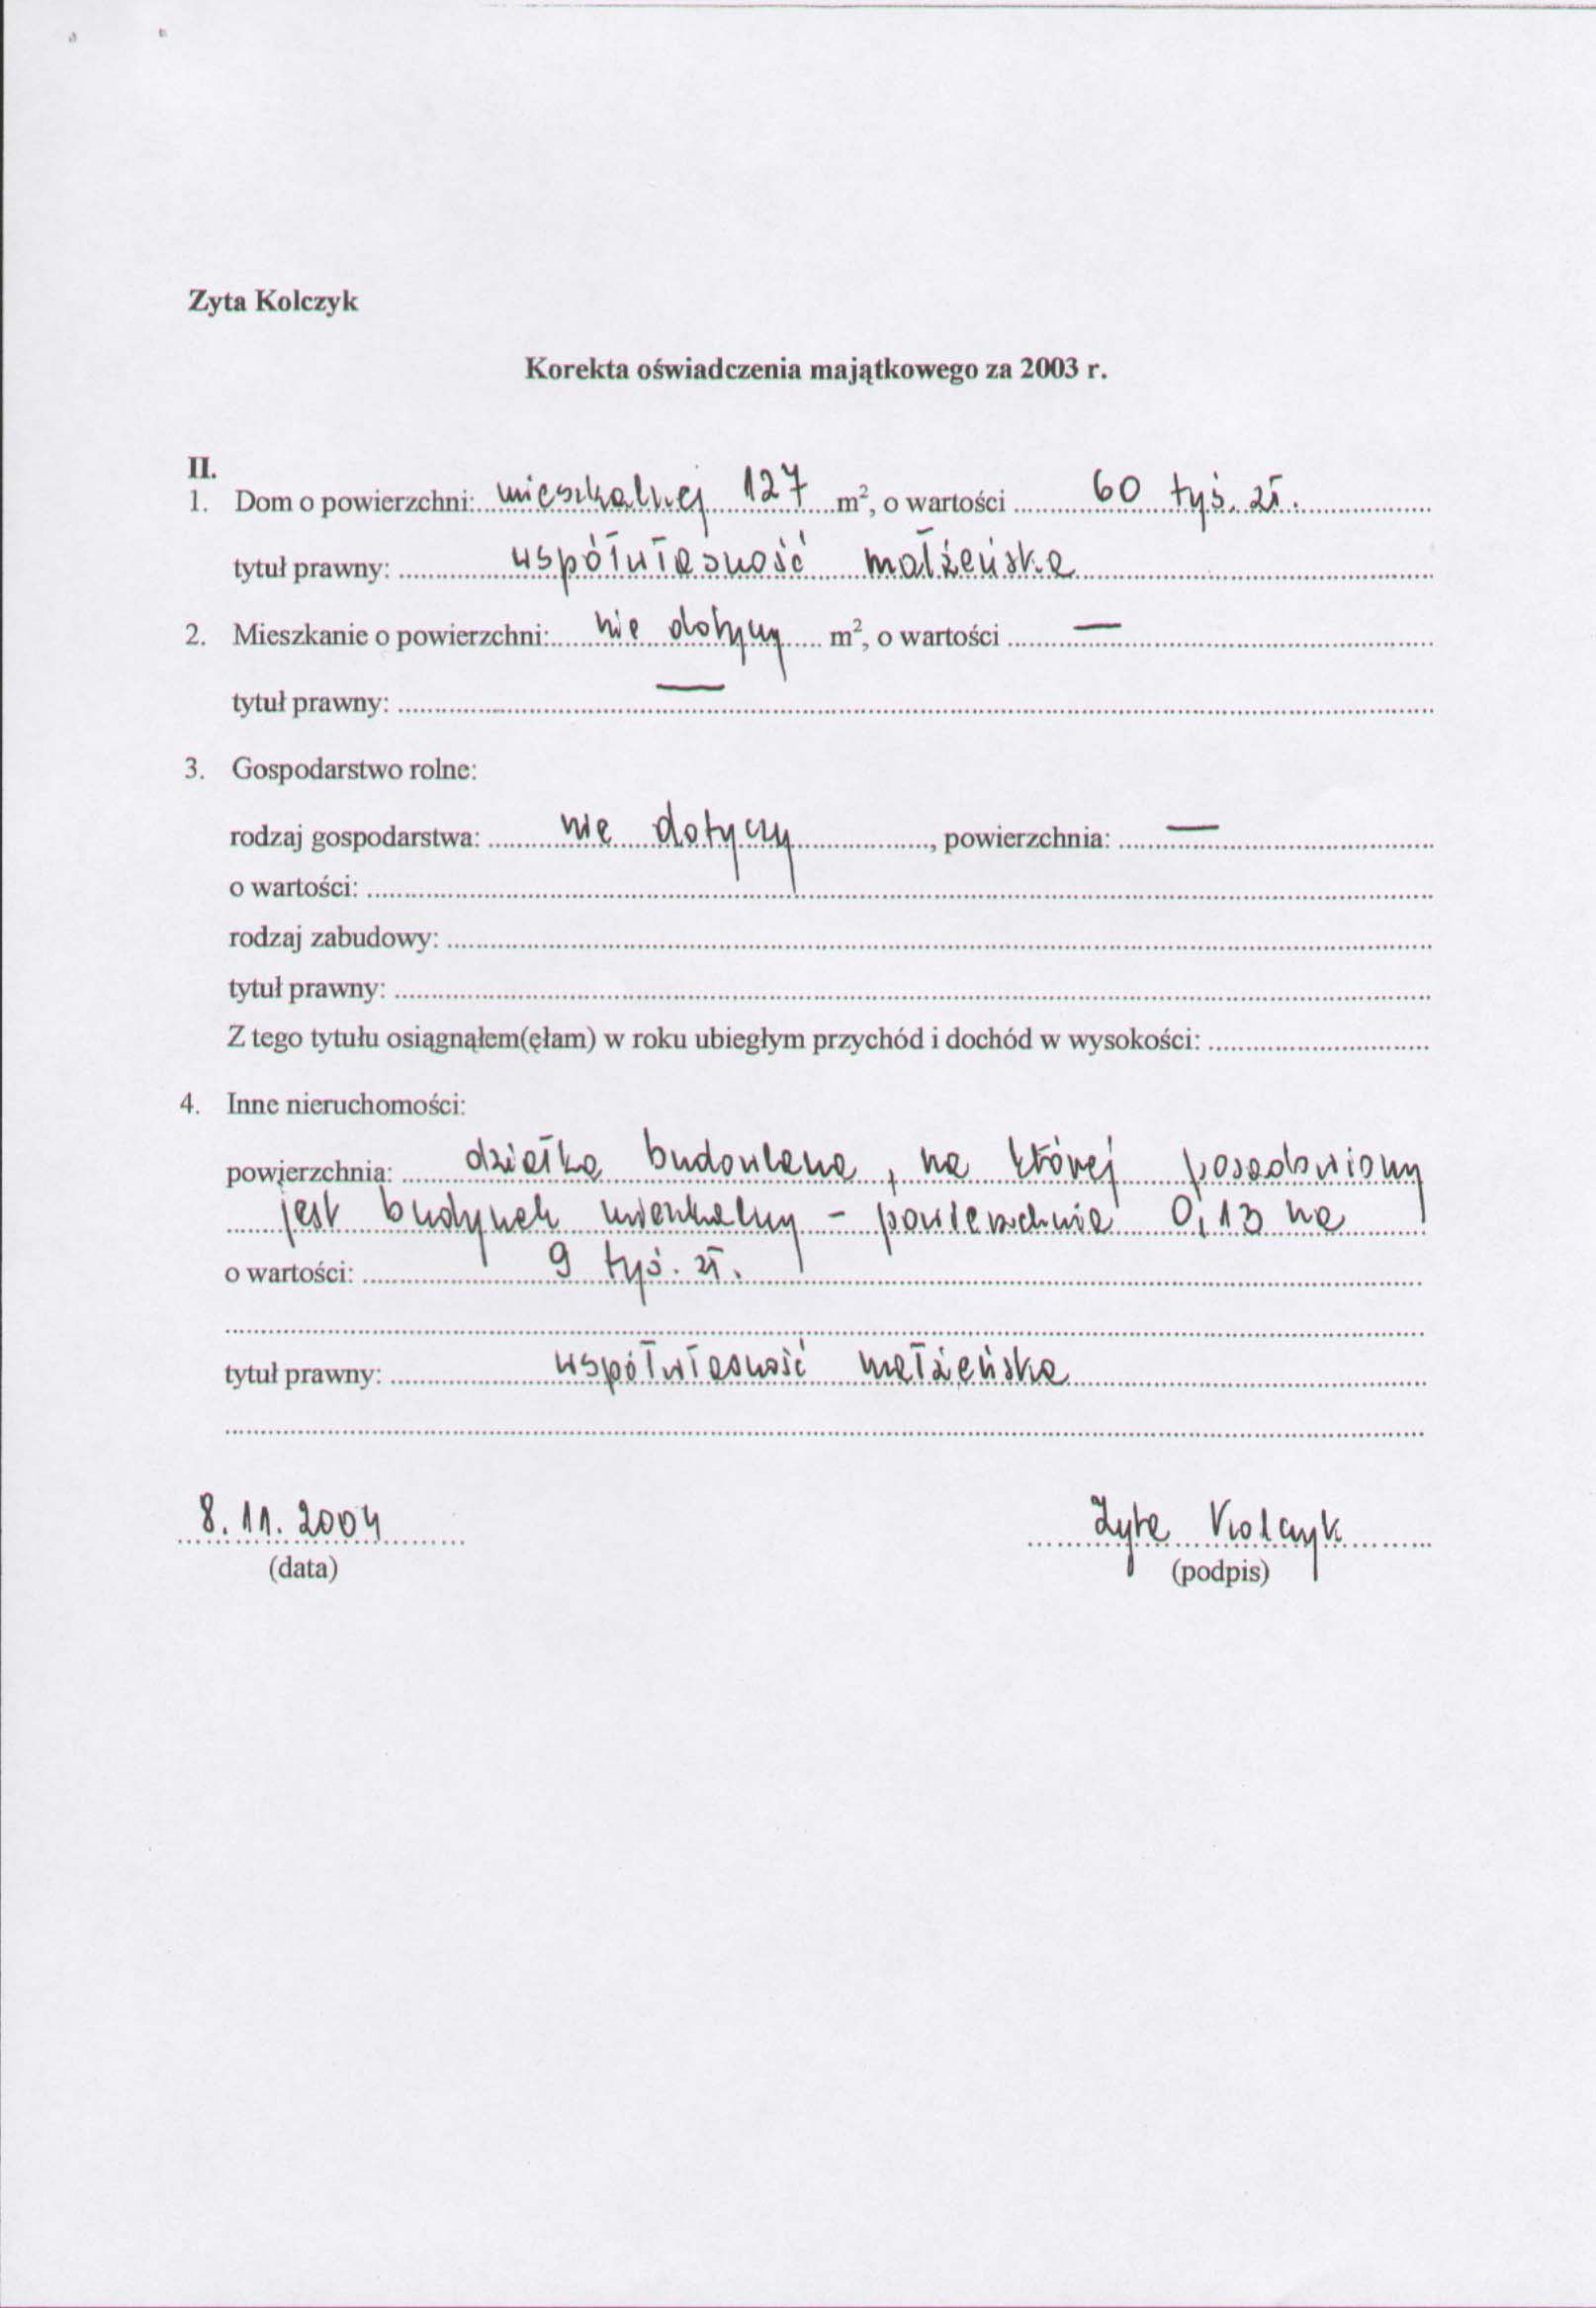 Zyta Kolczyk
Korekta oświadczenia majątkowego za 2003 r.
II.
1. Dom o powierzchni: mieszkalnej 127 m², o wartości 60 tyś. zł.
tytuł prawny: współwłasność małżeńska
2. Mieszkanie o powierzchni: nie dotyczy m², o wartości —
tytuł prawny: —
3. Gospodarstwo rolne:
rodzaj gospodarstwa: nie dotyczy, powierzchnia: —
o wartości:
rodzaj zabudowy:
tytuł prawny:
Z tego tytułu osiągnąłem(ęłam) w roku ubiegłym przychód i dochód w wysokości:
4. Inne nieruchomości:
powierzchnia: działka budowlana, na której posadowiony
jest budynek mieszkalny – powierzchnia 0,13 ha
o wartości: 9 tyś. zł.
tytuł prawny: współwłasność małżeńska
8.11.2004 Zyta Kolczyk
(data) (podpis)